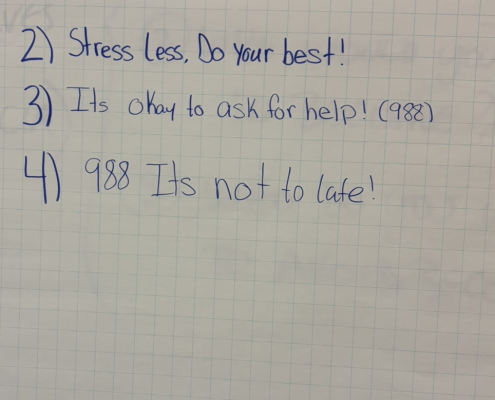 2) Stress Less. Do Your best!
3) Its okay to ask for help! (988)
4) 988 Its not to late!